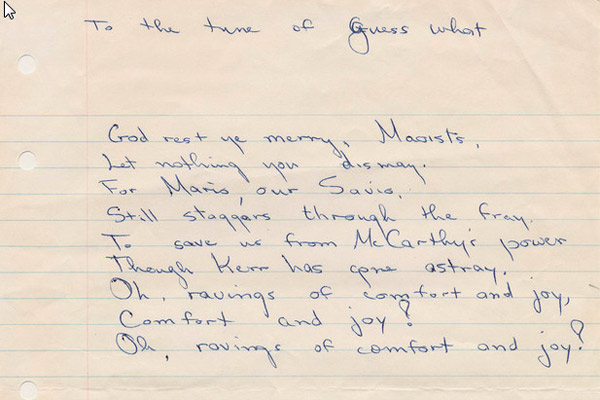 To the tune of Guess what
God rest ye merry, Maoists,
Let nothing you dismay.
For Mario, our Savio,
Still staggars through the fray.
To save us from McCarthy's power
Though Kerr has gone astray.
Oh, ravings of comfort and joy,
Comfort and joy?
Oh, ravings of comfort and joy?